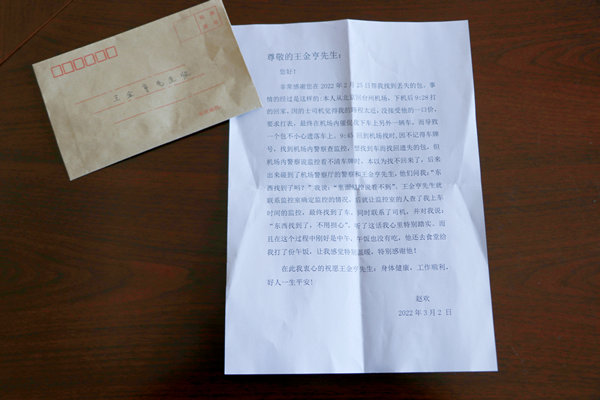 王金亨先生收
尊敬的王金亨先生：
您好！
非常感谢您在 2022 年 2 月 25 日帮我找到丢失的包。事
情的经过是这样的:本人从北京回台州机场，下机后 9:28 打
的回家，因的士司机觉得我的路程太近，没接受他的一口价，
要求打表，最终在机场内催促我下车上另外一辆车。而导致
一个包不小心遗落车上，9:45 回到机场找时，因不记得车牌
号，找到机场内警察查监控，想找到车而找回遗失的包，但
机场内警察说监控看不清车牌时，本以为找不回来了，后来
出来碰到了机场警察厅的警察和王金亨先生，他们问我:“东
西找到了吗？”我说：“里面监控说看不到”，王金亨先生就
联系监控室确定监控的情况。后就让监控室的人查了我上车
时间的监控，最终找到了车，同时联系了司机，并对我说：
“东西找到了，不用担心”。听了这话我心里特别踏实。而
且在这个过程中刚好是中午，午饭也没有吃，他还去食堂给
我打了份午饭，让我感觉特别温暖，特别感谢他！
在此我衷心的祝愿王金亨先生：身体健康，工作顺利，
好人一生平安！
赵欢
2022 年 3 月 2 日